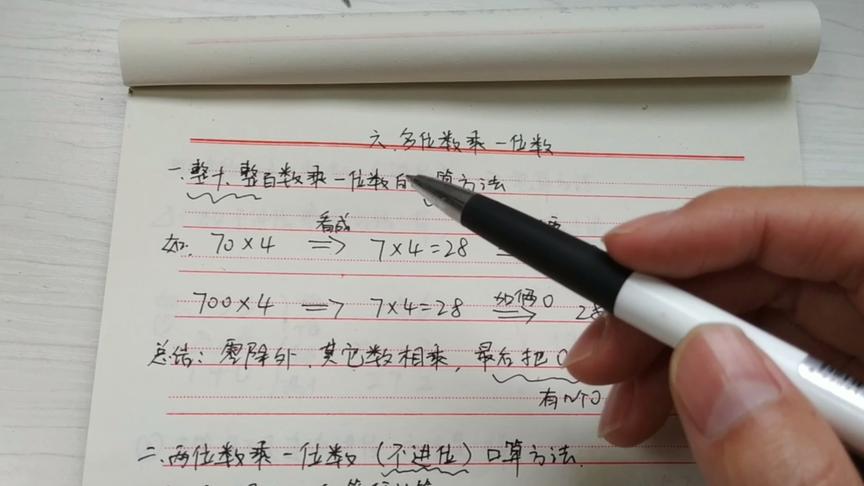 六、多位数乘一位数
一、整十、整百数乘一位数的 算方法
看成
如: 70×4 ⇒ 7×4=28
加俩0
700×4 ⇒ 7×4=28 ⇒ 28
总结: 零除外,其它数相乘,最后把0
有几个0
二、两位数乘一位数(不进位)口算方法.